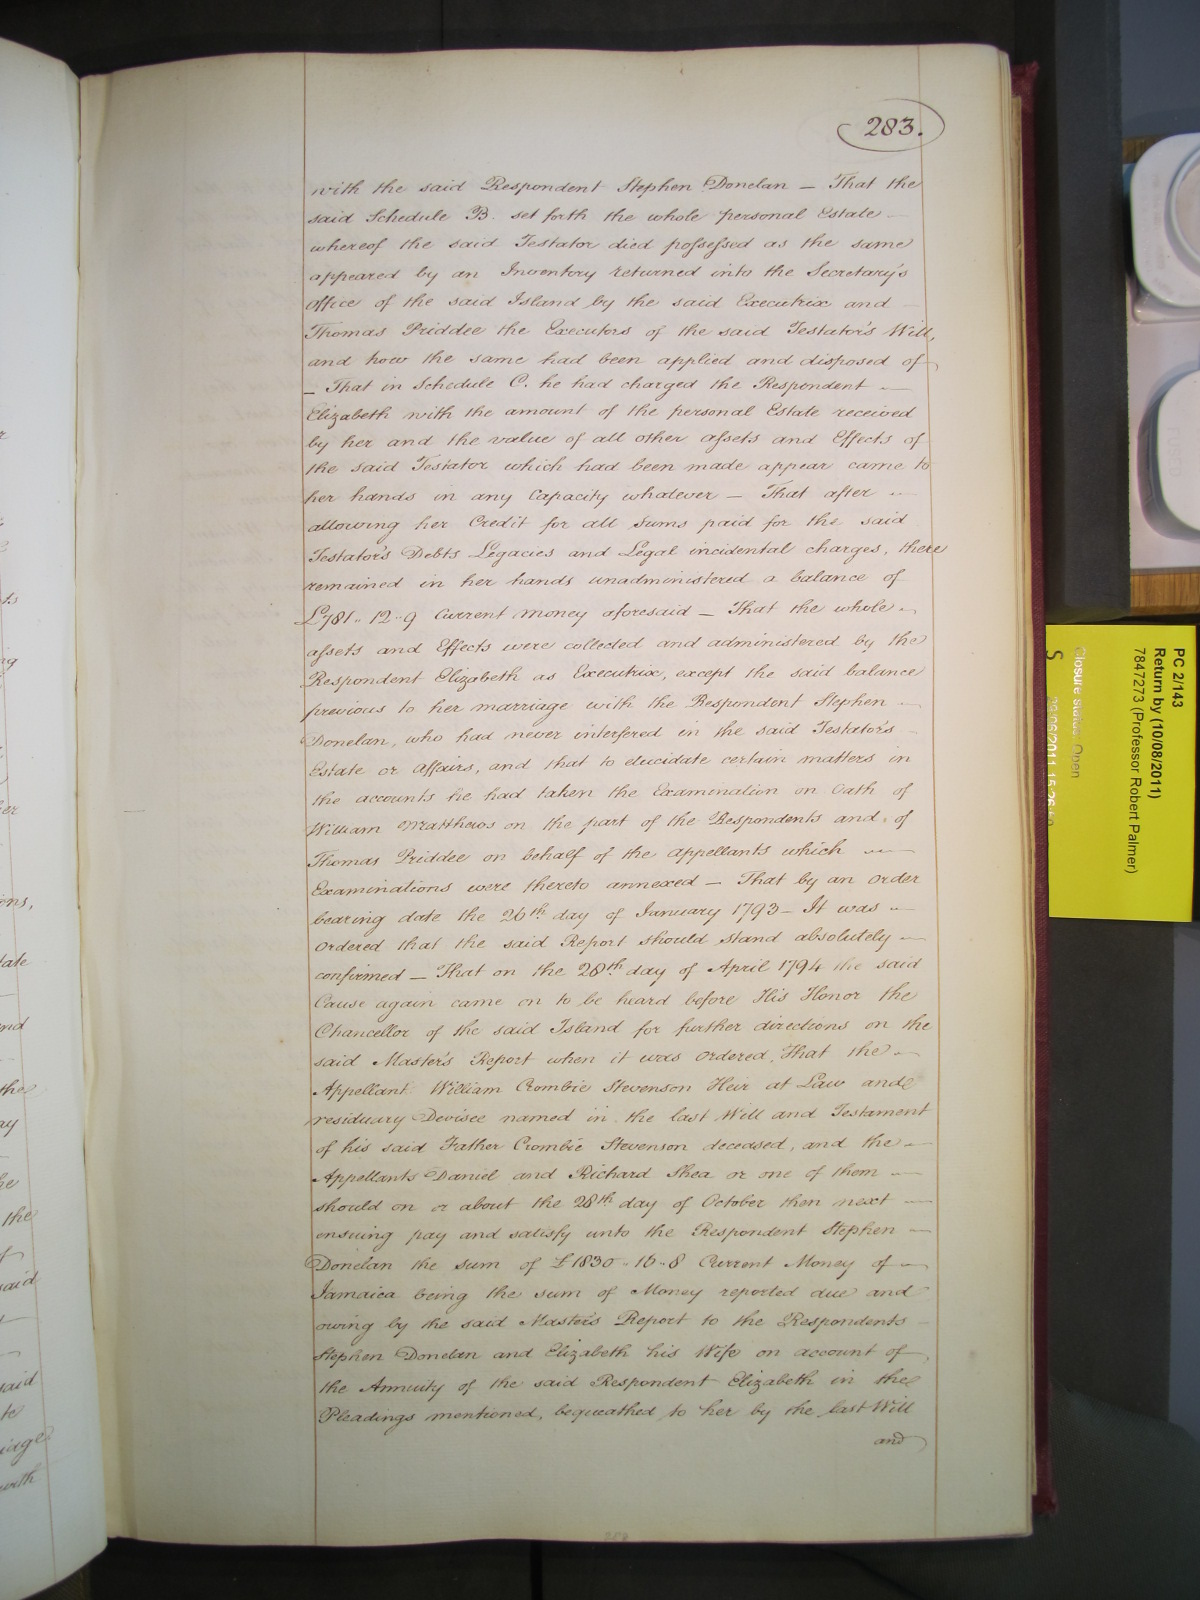 283.
with the said Respondent Stephen Donelan — That the
said Schedule B. set forth the whole personal Estate
whereof the said Testator died possessed as the same
appeared by an Inventory returned into the Secretary's
Office of the said Island by the said Executrix and
Thomas Priddee the Executors of the said Testator's Will,
and how the same had been applied and disposed of
— That in Schedule C. he had charged the Respondent
Elizabeth with the amount of the personal Estate received
by her and the value of all other assets and Effects of
the said Testator which had been made appear came to
her hands in any Capacity whatever — That after
allowing her Credit for all Sums paid for the said
Testator's Debts Legacies and Legal incidental charges, there
remained in her hands unadministered a balance of
£781.. 12..9 Current money aforesaid — That the whole
assets and Effects were collected and administered by the
Respondent Elizabeth as Executrix, except the said balance
previous to her marriage with the Respondent Stephen
Donelan, who had never interfered in the said Testator's
Estate or Affairs, and that to elucidate certain matters in
the accounts he had taken the Examination on Oath of
William Matthews on the part of the Respondents and of
Thomas Priddee on behalf of the appellants which
Examinations were thereto annexed — That by an order
bearing date the 26th day of January 1793 — It was
Ordered that the said Report should stand absolutely
confirmed — That on the 28th day of April 1794 the said
Cause again came on to be heard before His Honor the
Chancellor of the said Island for further directions on the
said Master's Report when it was Ordered, That the
Appellant William Crombie Stevenson Heir at Law and
residuary Devisee named in the last Will and Testament
of his said Father Crombie Stevenson deceased, and the
Appellants Daniel and Richard Shea or one of them
should on or about the 28th day of October then next
ensuing pay and satisfy unto the Respondent Stephen
Donelan the sum of £1830..16..8 Current Money of
Jamaica being the sum of Money reported due and
owing by the said Master's Report to the Respondents
Stephen Donelan and Elizabeth his Wife on account of
the Annuity of the said Respondent Elizabeth in the
Pleadings mentioned, bequeathed to her by the last Will
and
PC 2/143
Return by (10/08/2011)
7847273 (Professor Robert Palmer)
Closure status: Open
S